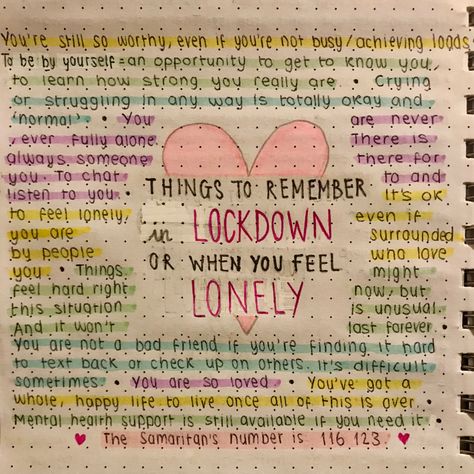 THINGS TO REMEMBER
in LOCKDOWN
OR WHEN YOU FEEL
LONELY
You're still so worthy, even if you're not busy/achieving loads
To be by yourself = an opportunity to get to know you,
to learn how strong you really are • Crying
or struggling in any way is totally okay and
'normal' • You are never
, ever fully alone. There is
always someone there for
you. To chat to and
listen to you • It's ok
to feel lonely, even if
you are surrounded
by people who love
you • Things might
feel hard right now, but
this situation is unusual.
And it won't last forever •
You are not a bad friend if you're finding it hard
to text back or check up on others. It's difficult
sometimes • You are so loved • You've got a
whole, happy life to live once all of this is over •
Mental health support is still available if you need it.
♥ The Samaritan's number is 116 123. ♥